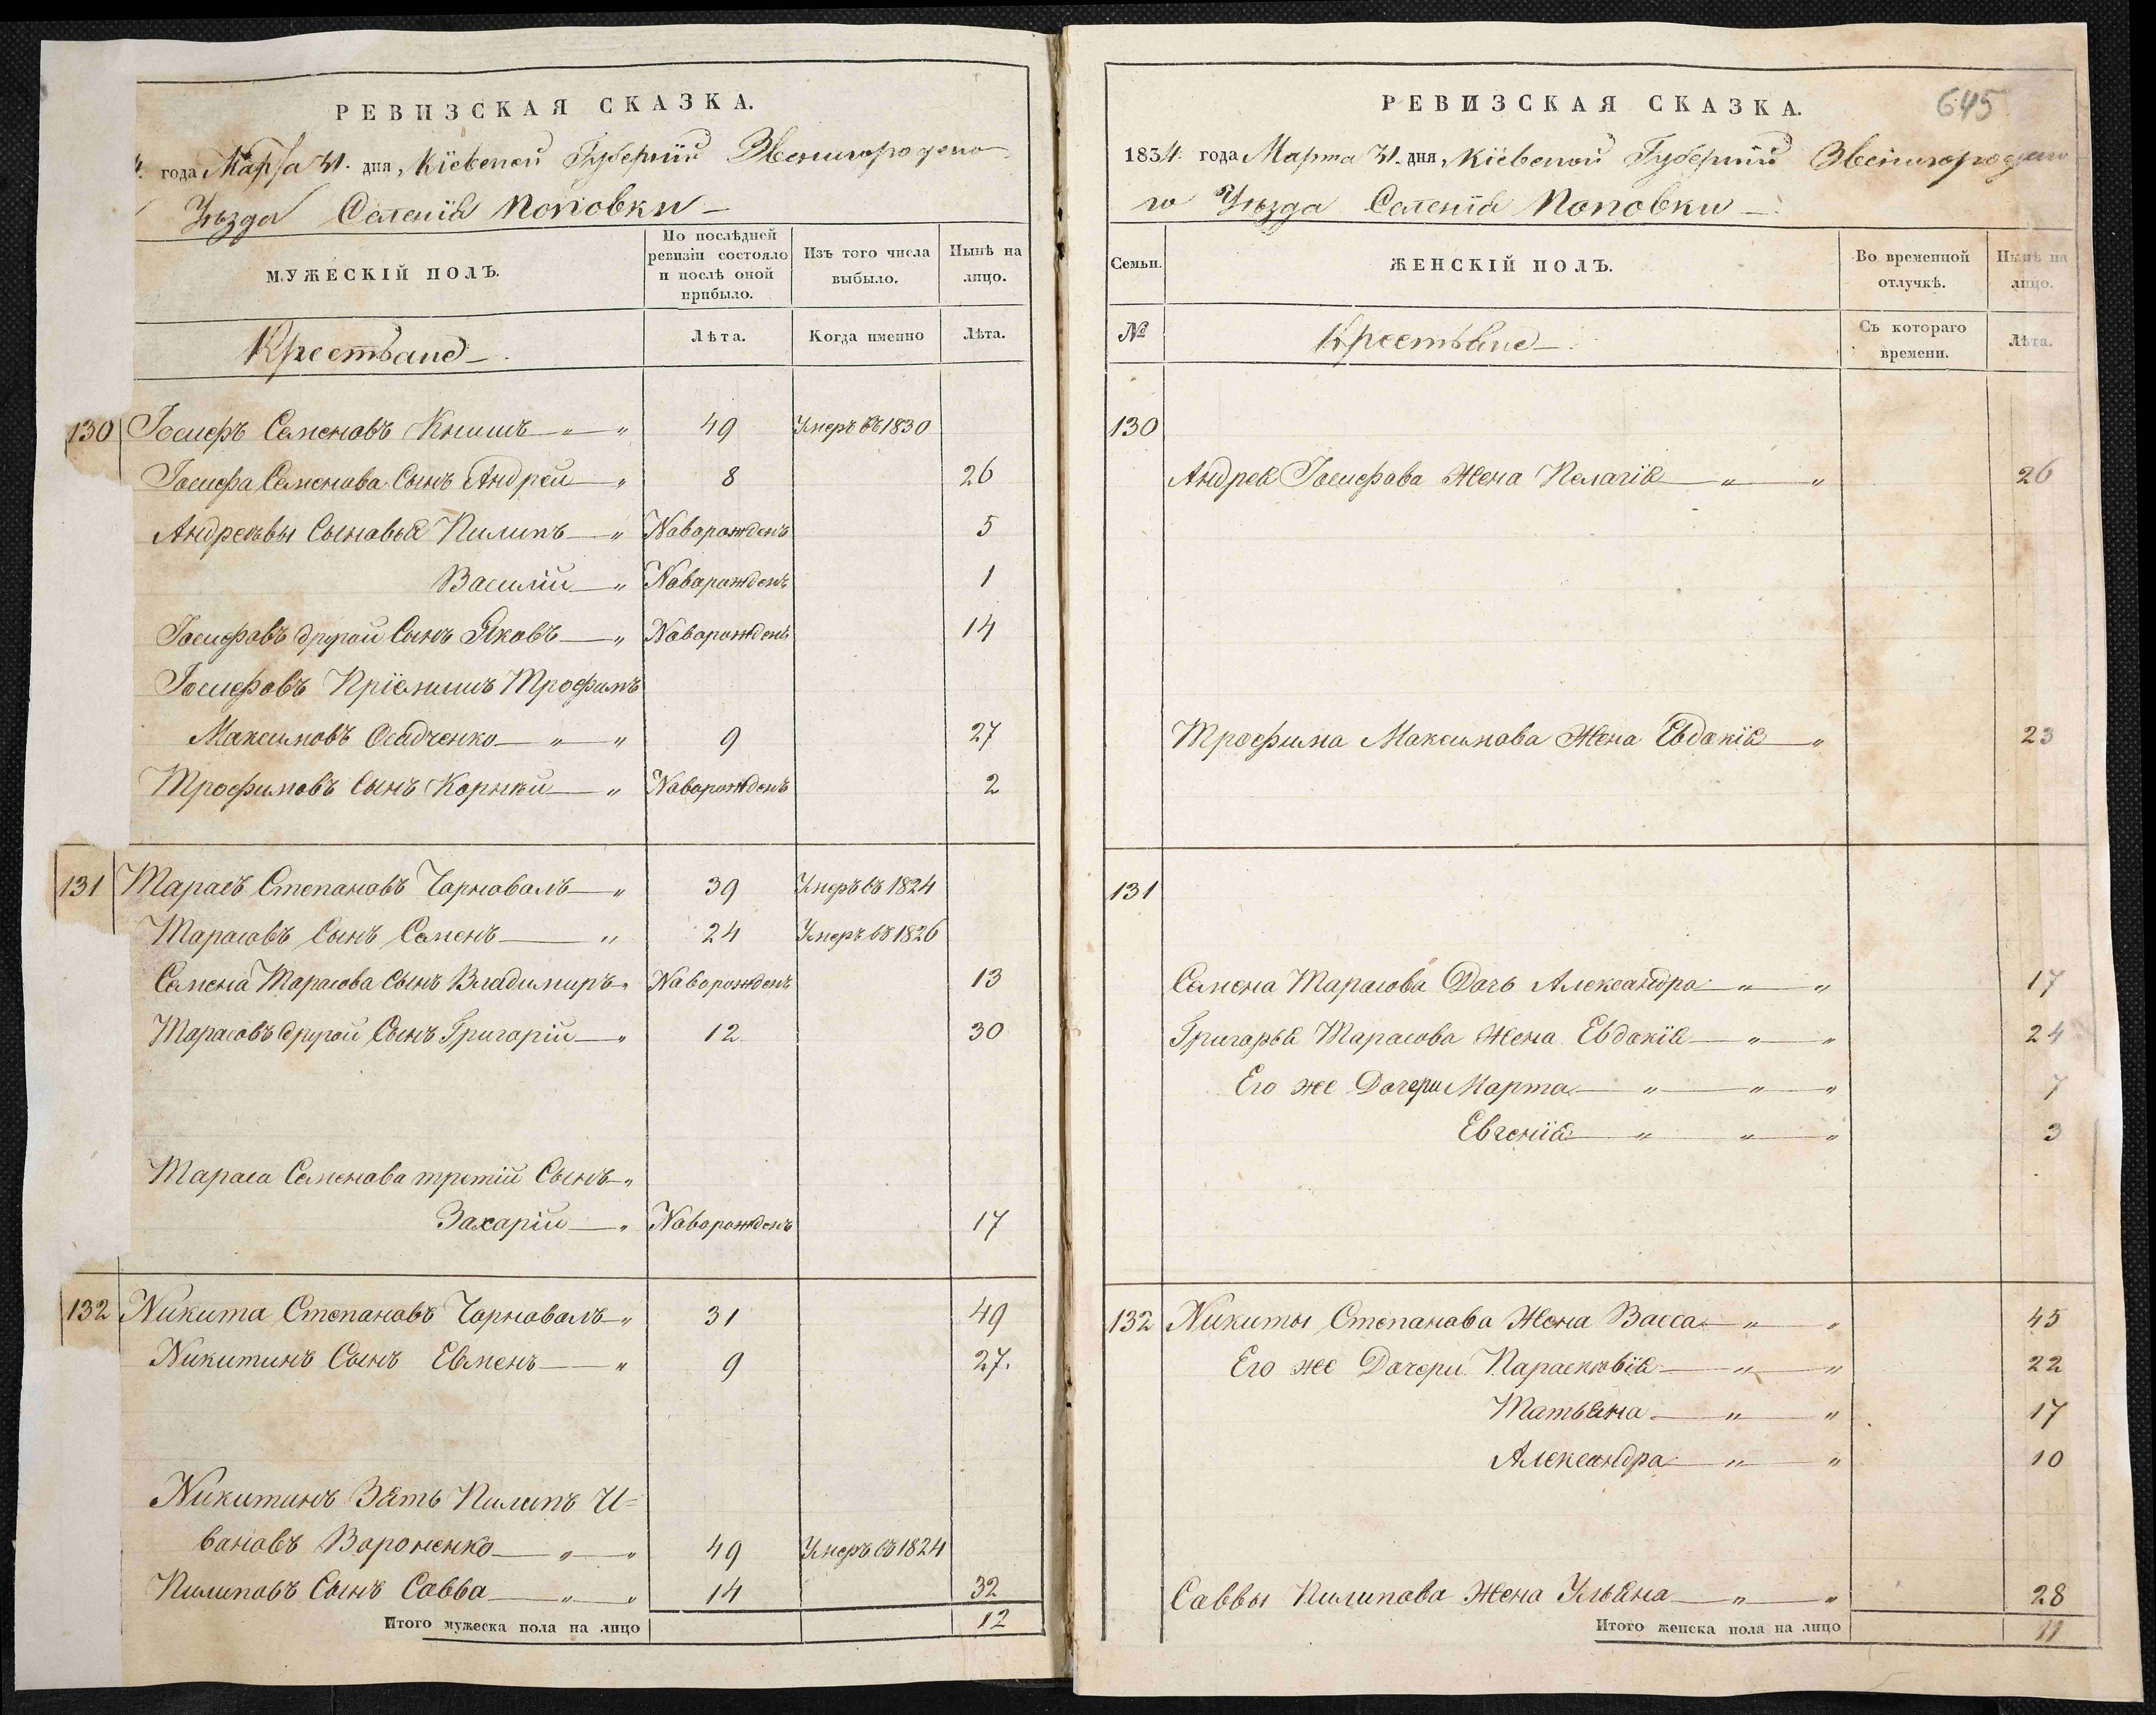 РЕВИЗСКАЯ СКАЗКА.
года Марта 31. дня, Кіевской Губерніи Звенигородско
Уѣзда Селенія Поповки
МУЖЕСКІЙ ПОЛЪ.
По послѣдней ревизіи состояло и послѣ оной прибыло.
Изъ того числа выбыло.
Нынѣ на лицо.
Крестьяне
Лѣта.
Когда именно
Лѣта.
130 Іосифъ Семеновъ Книшъ 49 Умеръ въ 1830
Іосифа Семенова Сынъ Андрей 8 26
Андреевы Сыновья Пилипъ Новорожденъ 5
Василій Новорожденъ 1
Іосифовъ другой Сынъ Яковъ Новорожденъ 14
Іосифовъ Пріемишъ Трофимъ
Максимовъ Осадченко 9 27
Трофимовъ Сынъ Корнѣй Новорожденъ 2
131 Тарасъ Степановъ Чорновалъ 39 Умеръ въ 1824
Тарасовъ Сынъ Семенъ 24 Умеръ въ 1826
Семена Тарасова Сынъ Владимиръ Новорожденъ 13
Тарасовъ другой Сынъ Григорій 12 30
Тараса Семенова третій Сынъ
Захарій Новорожденъ 17
132 Никита Степановъ Чорновалъ 31 49
Никитинъ Сынъ Евменъ 9 27.
Никитинъ Зять Пилипъ И=
вановъ Вороненко 49 Умеръ въ 1824
Пилиповъ Сынъ Савва 14 32
Итого мужеска пола на лицо 12
РЕВИЗСКАЯ СКАЗКА.
645
1834. года Марта 31. дня, Кіевской Губерніи Звенигородско
го Уѣзда Селенія Поповки
Семьи.
ЖЕНСКІЙ ПОЛЪ.
Во временной отлучкѣ.
Нынѣ на лицо.
№
Крестьяне
Съ котораго времени.
Лѣта.
130
Андрея Іосифова Жена Пелагія 26
Трофима Максимова Жена Евдокія 23
131
Семена Тарасова Дочь Александра 17
Григорья Тарасова Жена Евдокія 24
Его же Дочери Марта 7
Евгенія 3
132 Никиты Степанова Жена Васса 45
Его же Дочери Параскювія 22
Татьяна 17
Александра 10
Саввы Пилипова Жена Ульяна 28
Итого женска пола на лицо 11